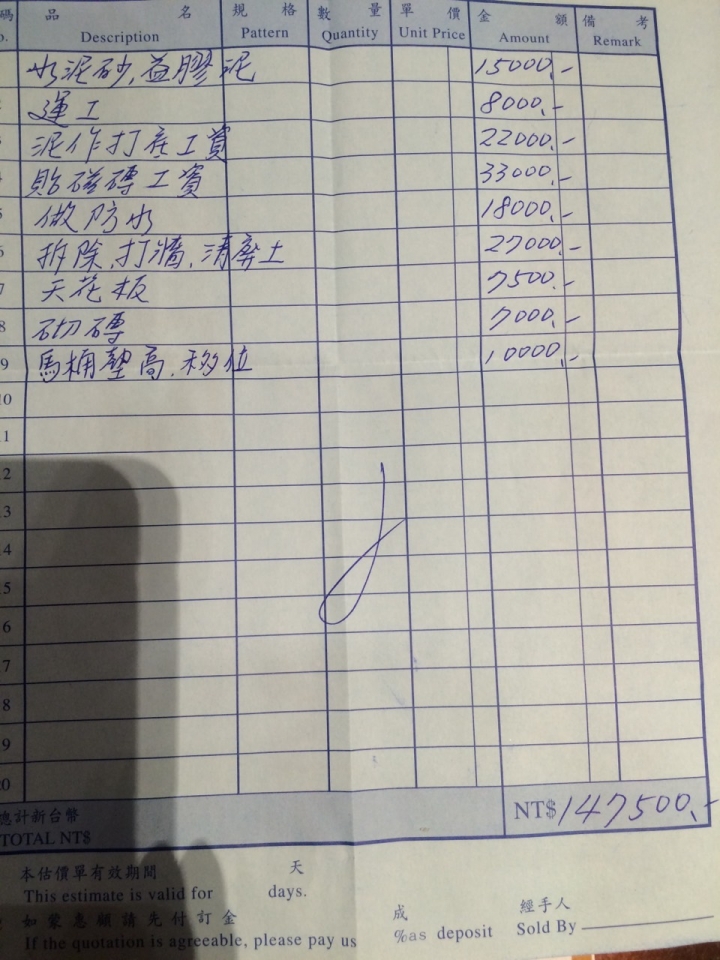 碼 品 名 規 格 數 量 單 價 金 額 備 考
o. Description Pattern Quantity Unit Price Amount Remark
水泥砂,益膠泥 15000.-
2 運工 8000.-
3 泥作打底工資 22000.-
4 貼磁磚工資 33000.-
5 做防水 18000.-
6 拆除,打牆,清廢土 27000.-
7 天花板 7500.-
8 砌磚 7000.-
9 馬桶墊高,移位 10000.-
10
11
12
13
14
15
16
17
18
19
20
總計新台幣
TOTAL NT$ NT$147500.-
本估價單有效期間 天
This estimate is valid for days.
如蒙惠顧請先付訂金 成 經手人
If the quotation is agreeable, please pay us %as deposit Sold By